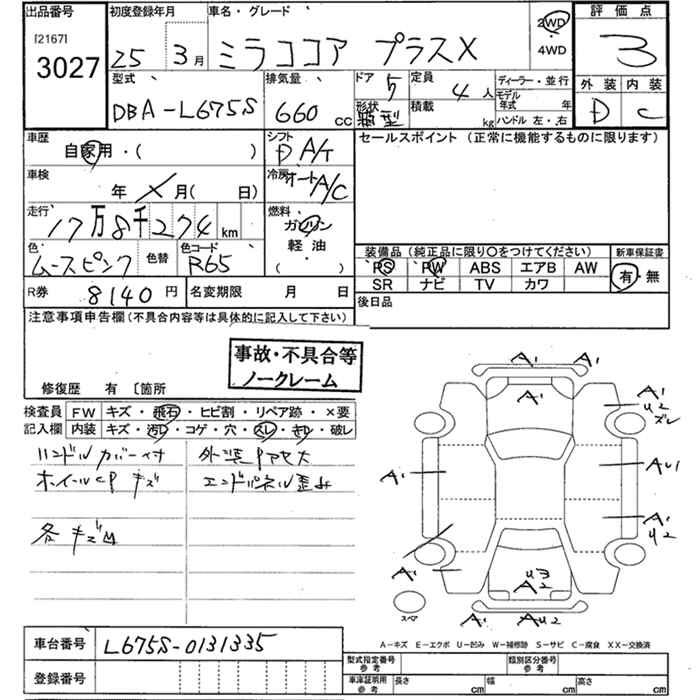 出品番号 初度登録年月 車名・グレード 2WD 評価点
[2167]
3027 25年 3月 ミラココア プラスX 4WD 3
型式 排気量 ドア 5 定員 4人 ディーラー・並行 外装 内装
DBA-L675S 660cc 形状 箱型 積載 kg モデル年式 年 D C
ハンドル 左・右
車歴 シフト セールスポイント (正常に機能するものに限ります)
自家用・( ) F A/T
車検 冷房
年 月( 日) オート A/C
走行 燃料
17万8千274km ガソリン
色 色コード 軽油 装備品 (純正品に限り○をつけてください) 新車保証書
ムースピンク 色替 R65 ( ) PS PW ABS エアB AW 有・無
R券 8140円 名変期限 月 日 SR ナビ TV カワ
注意事項申告欄 (不具合内容等は具体的に記入して下さい) 後日品
事故・不具合等
ノークレーム
修復歴 有 〔箇所
検査員 FW キズ・飛石・ヒビ割・リペア跡・×要
記入欄 内装 キズ・汚レ・コゲ・穴・スレ・きレ・破レ
ハンドルカバー付
ホイールCPキズ エンドパネル歪み
各キズ凹
A1 A1
A1
A1
U2
ズレ
A1
AU1
A1
U2
A1
U3
A2
A1 AU2
スペア
A-キズ E-エクボ U-凹み W-補修跡 S-サビ C-腐食 XX-交換済
車台番号 L675S-0131335
登録番号 型式指定番号 参考 類別区分番号 参考
車庫証明用 参考 長さ cm 幅 cm 高さ cm